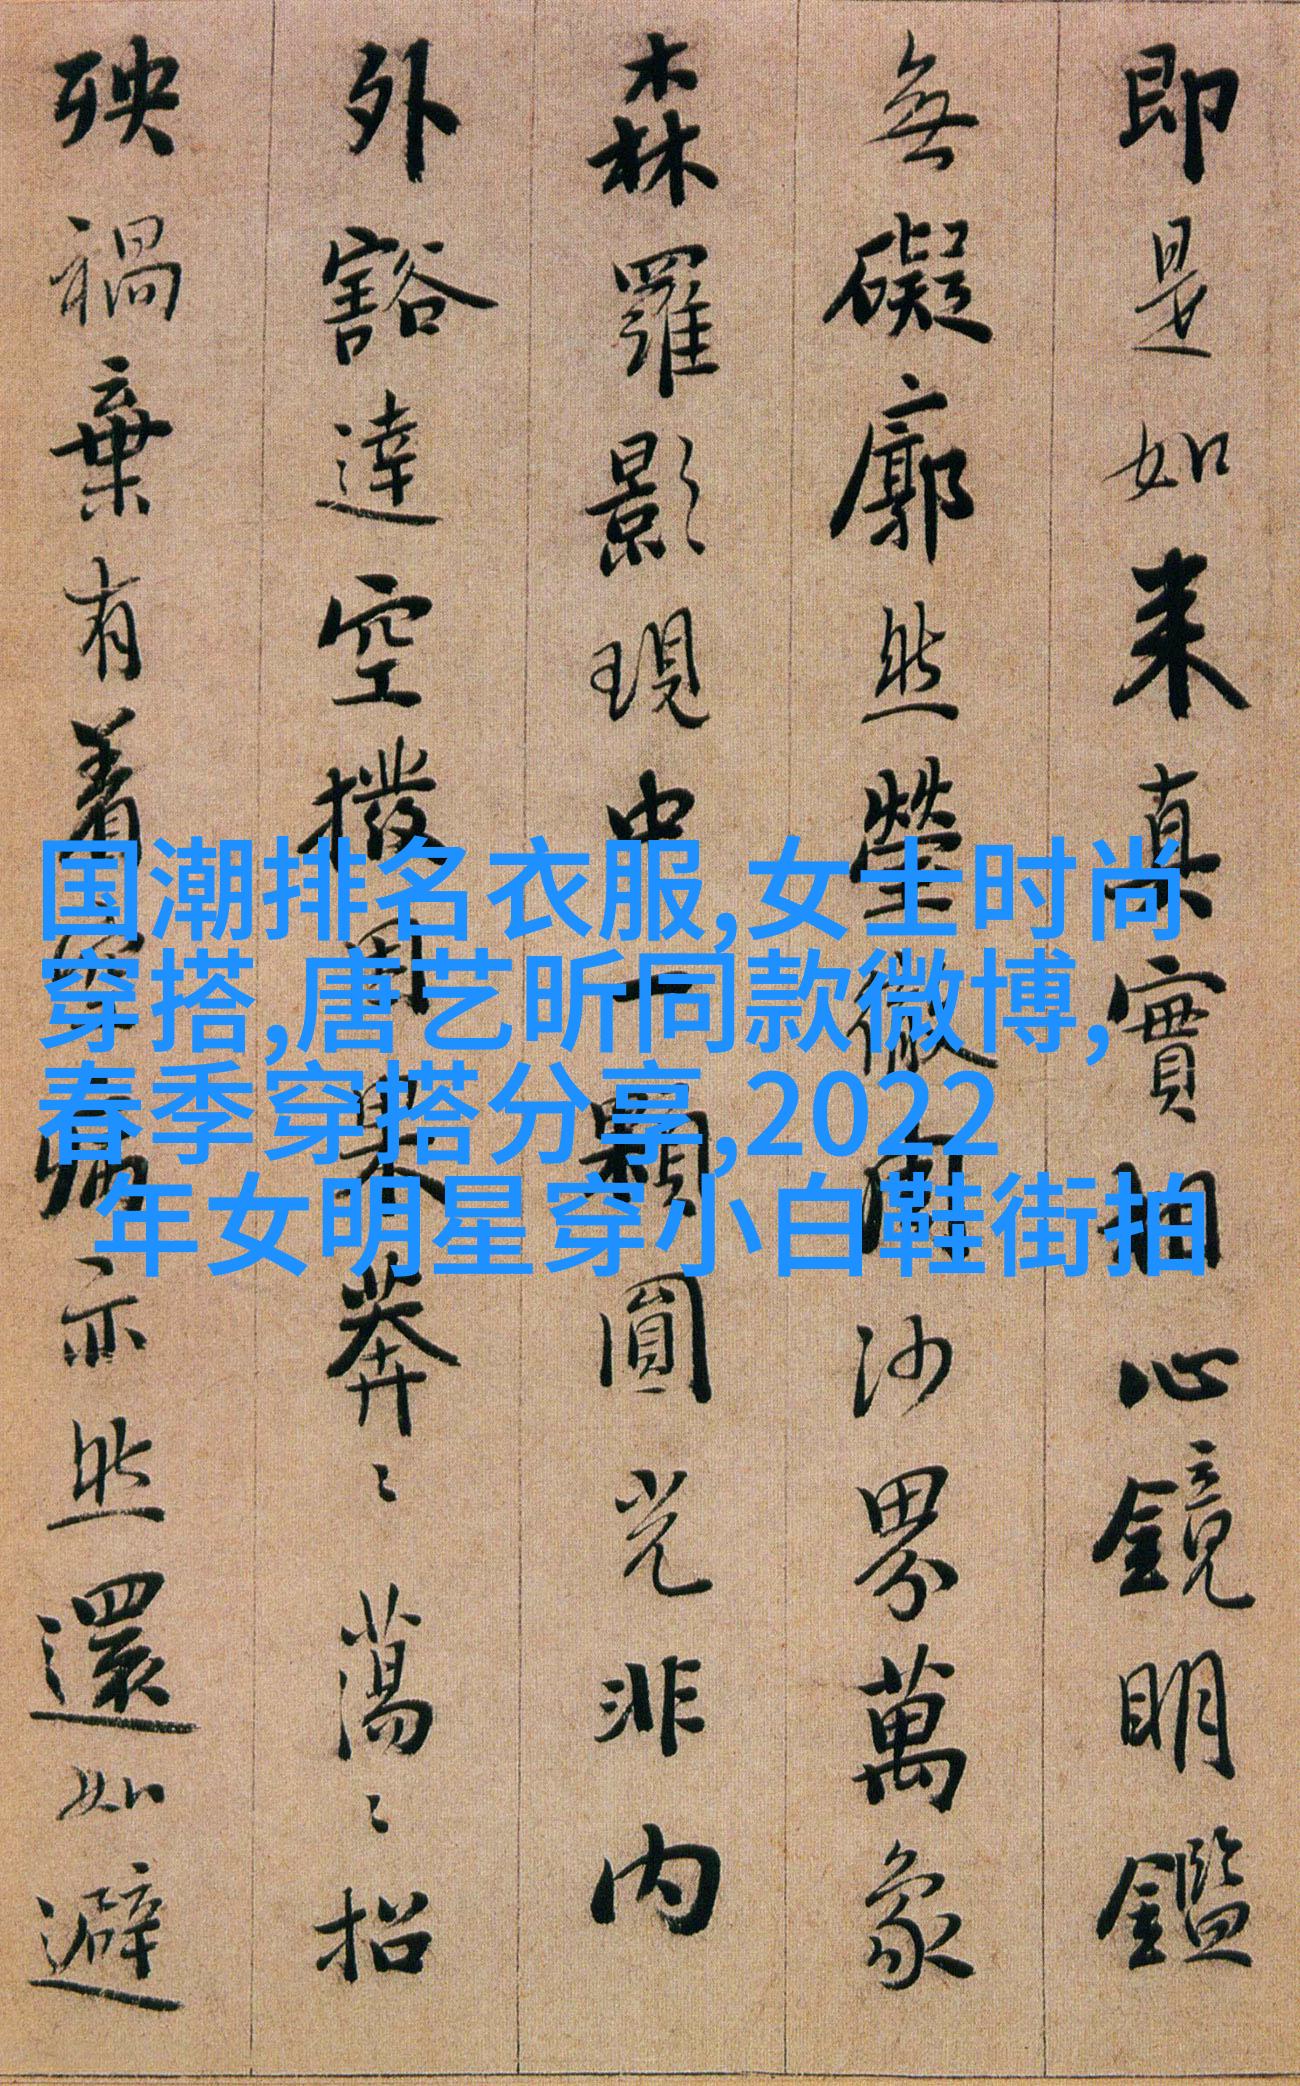 即是如来真實相心鏡明鑑
無礙廓然瑩徹周沙界萬象
森羅影現中一顆圓光非内
外豁達空撥因果莽〻蕩〻招
殃禍棄有着空病亦然還如避
国潮排名衣服,女士时尚
穿搭,唐艺昕同款微博,
春季穿搭分享,2022
年女明星穿小白鞋街拍